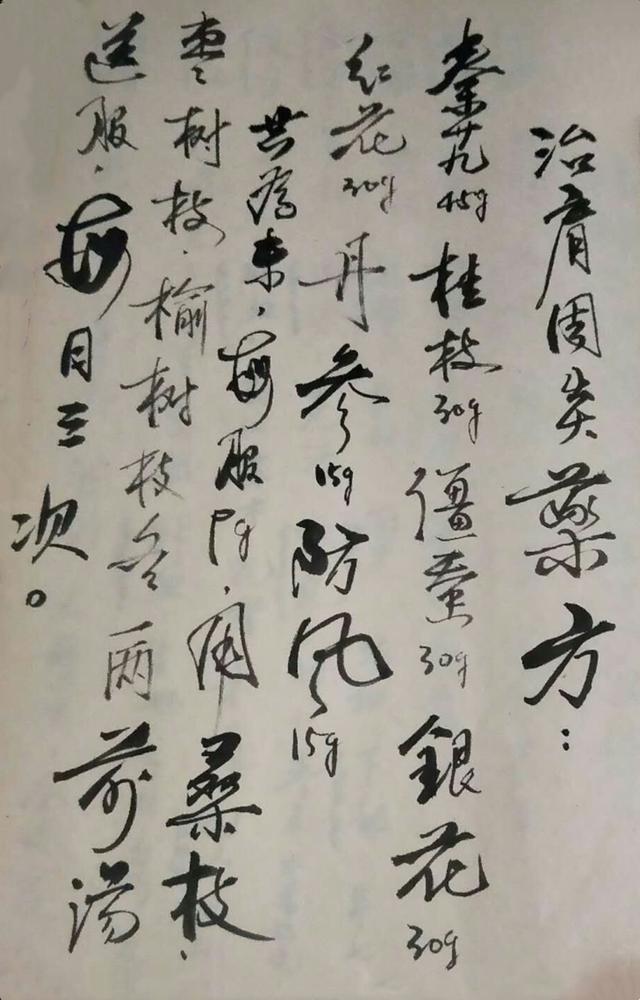 治肩周炎藥方：
秦艽45g 桂枝30g 僵蚕30g 銀花30g
红花30g 丹参15g 防风15g
共为末，每服9g，用桑枝、
枣树枝、榆树枝各一两煎湯
送服，每日三次。